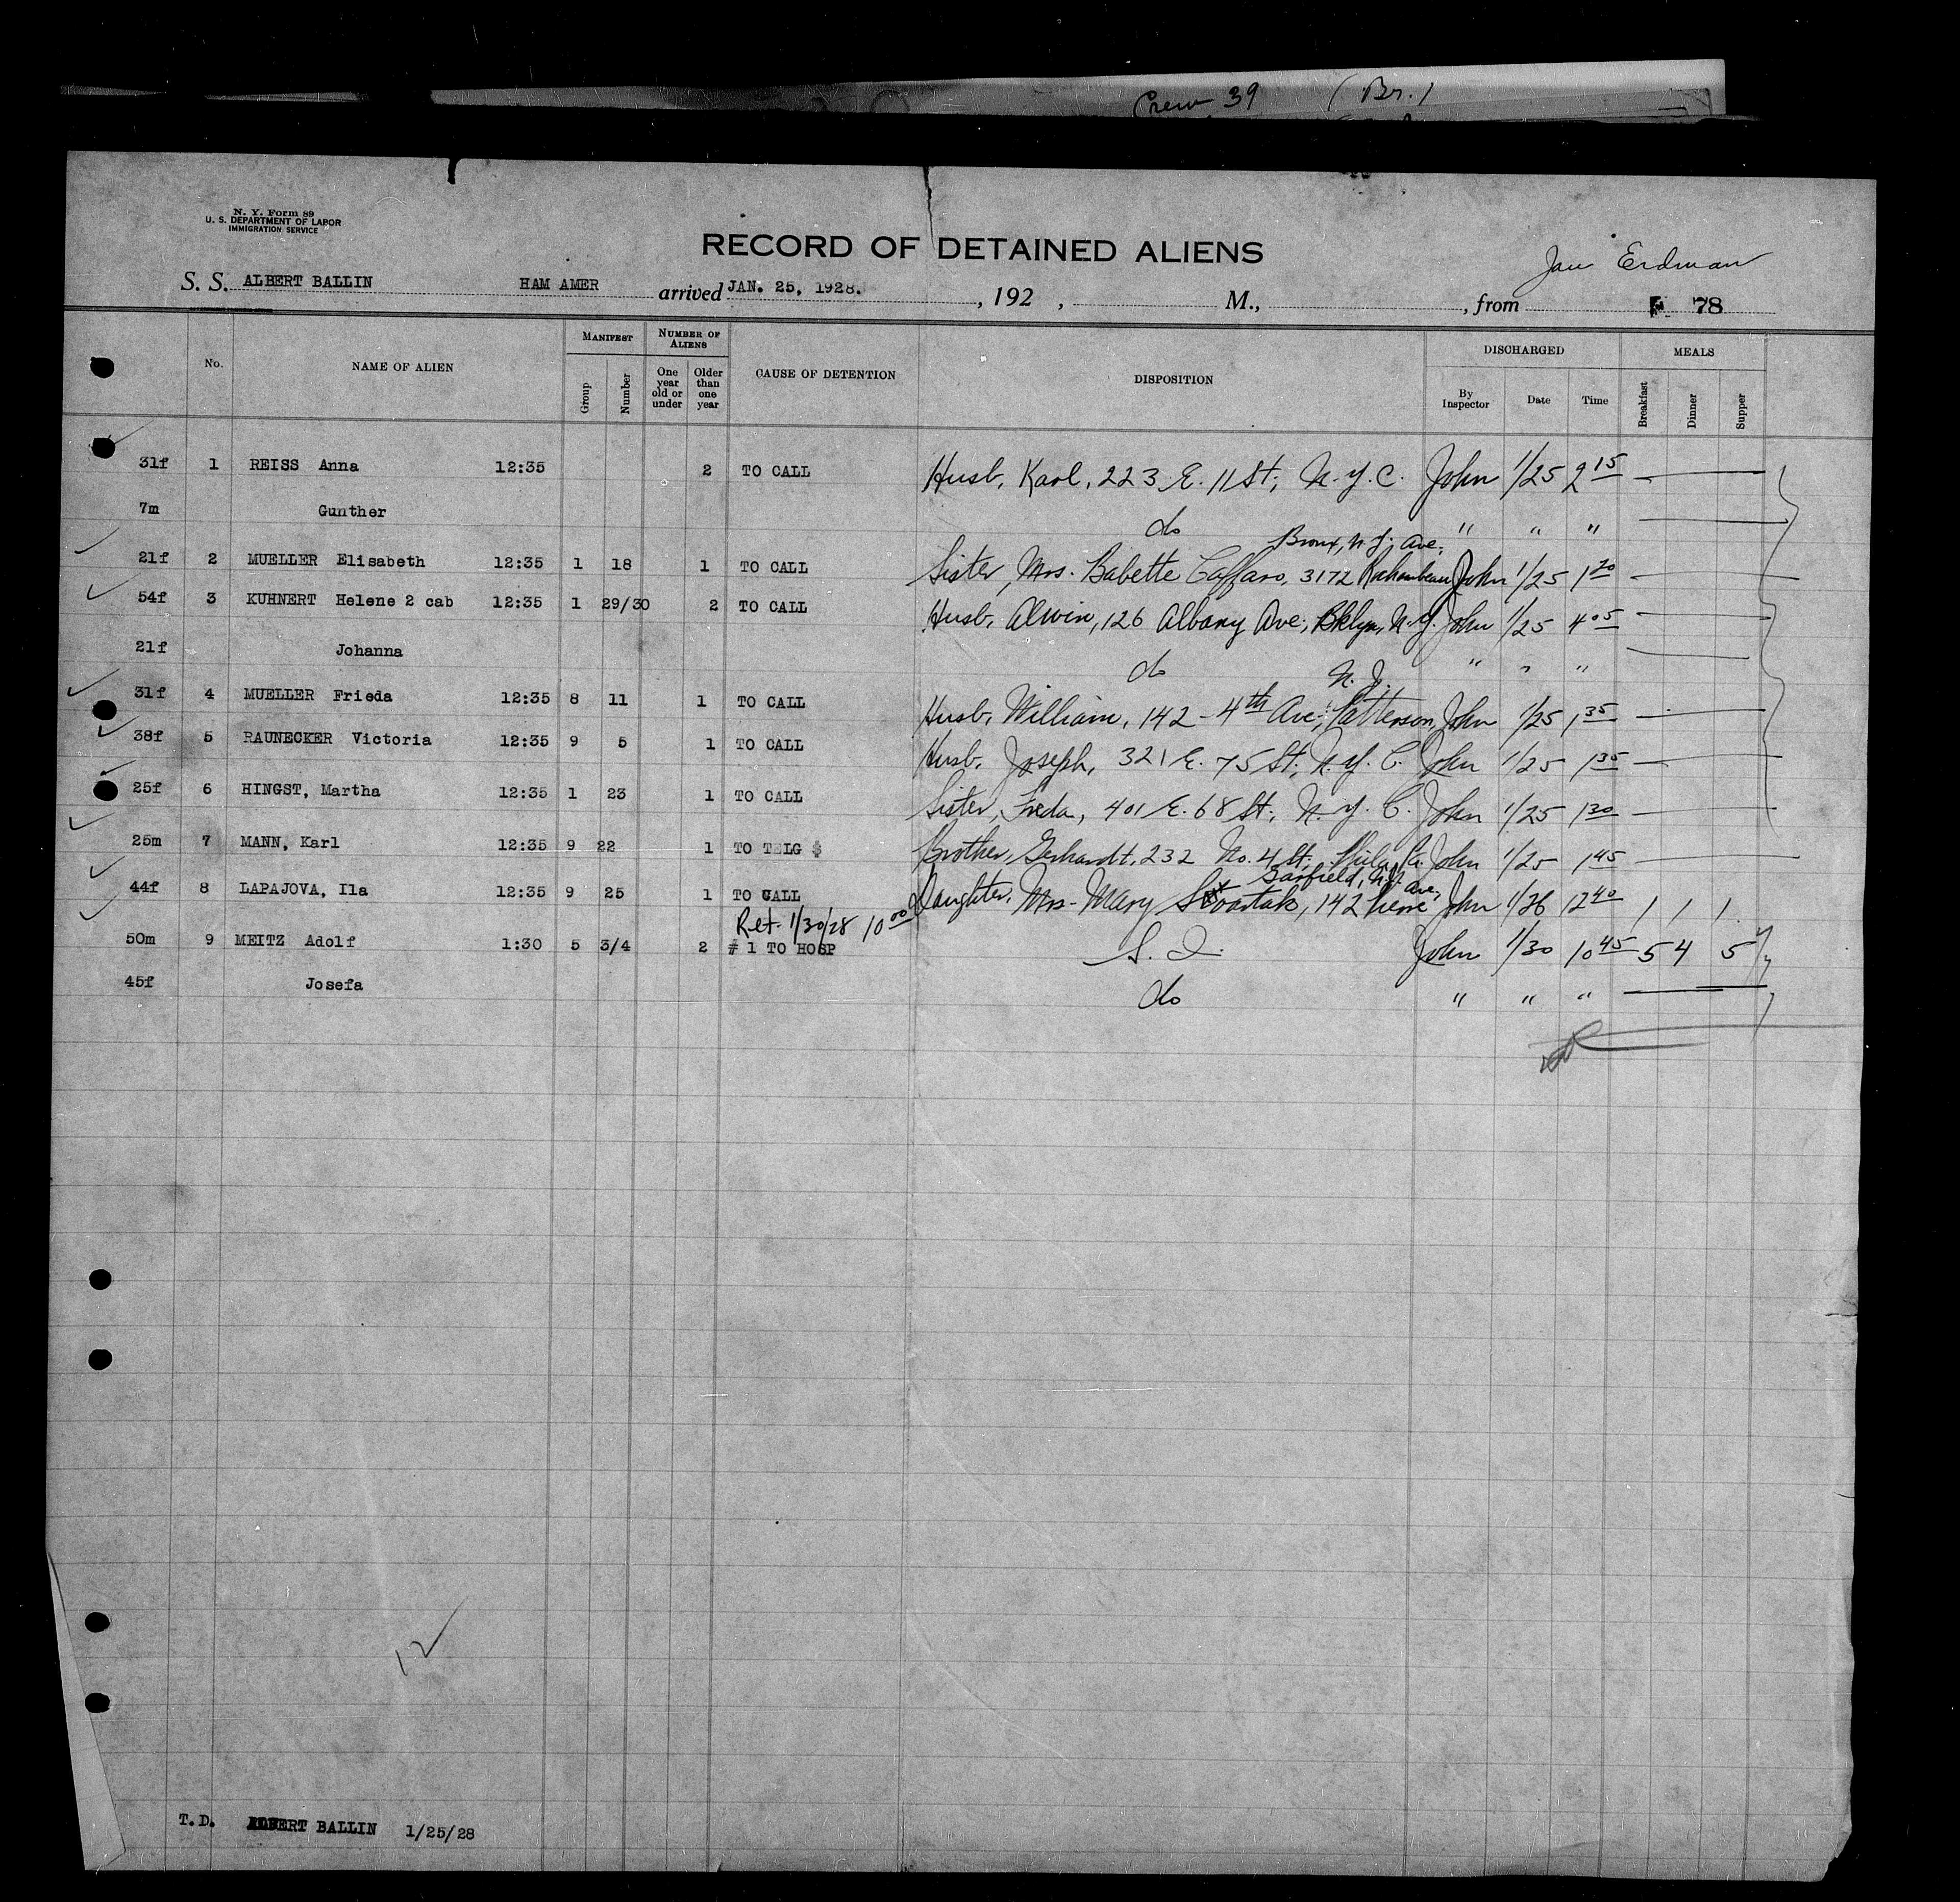 Crew 39 (Br.)
N. Y. Form 89
U. S. DEPARTMENT OF LABOR
IMMIGRATION SERVICE
RECORD OF DETAINED ALIENS
Jan Erdman
S. S. ALBERT BALLIN HAM AMER arrived JAN. 25, 1928. , 192 , M., , from 78
No. NAME OF ALIEN MANIFEST NUMBER OF ALIENS CAUSE OF DETENTION DISPOSITION DISCHARGED MEALS
Group Number One year old or under Older than one year By Inspector Date Time Breakfast Dinner Supper
31f 1 REISS Anna 12:35 2 TO CALL Husb, Karl, 223 E. 11 St; N.Y.C. John 1/25 2 15
7m Gunther do " " "
Bronx, N.Y. Ave;
21f 2 MUELLER Elisabeth 12:35 1 18 1 TO CALL Sister, Mrs. Babette Caffaro, 3172 Rochambeau John 1/25 1 20
54f 3 KUHNERT Helene 2 cab 12:35 1 29/30 2 TO CALL Husb, Alwin, 126 Albany Ave; Bklyn, N.Y. John 1/25 4 05
21f Johanna do " " "
N.J.
31f 4 MUELLER Frieda 12:35 8 11 1 TO CALL Husb, William, 142 - 4th Ave; Patterson, John 1/25 1 35
38f 5 RAUNECKER Victoria 12:35 9 5 1 TO CALL Husb, Joseph, 321 E. 75 St; N.Y.C. John 1/25 1 35
25f 6 HINGST, Martha 12:35 1 23 1 TO CALL Sister, Freda, 401 E. 68 St; N.Y.C. John 1/25 1 30
25m 7 MANN, Karl 12:35 9 22 1 TO TELG $ Brother, Gerhardt, 232 No. 4 St; Phila, Pa. John 1/25 1 45
Garfield, N.J. Ave;
44f 8 LAPAJOVA, Ila 12:35 9 25 1 TO CALL Daughter, Mrs. Mary 142 John 1/26 12 40 1 1 1
Ret. 1/30/28 10 00
50m 9 MEITZ Adolf 1:30 5 3/4 2 # 1 TO HOSP S. I. John 1/30 10 45 5 4 5
45f Josefa do " " "
12
T.D. ALBERT BALLIN 1/25/28